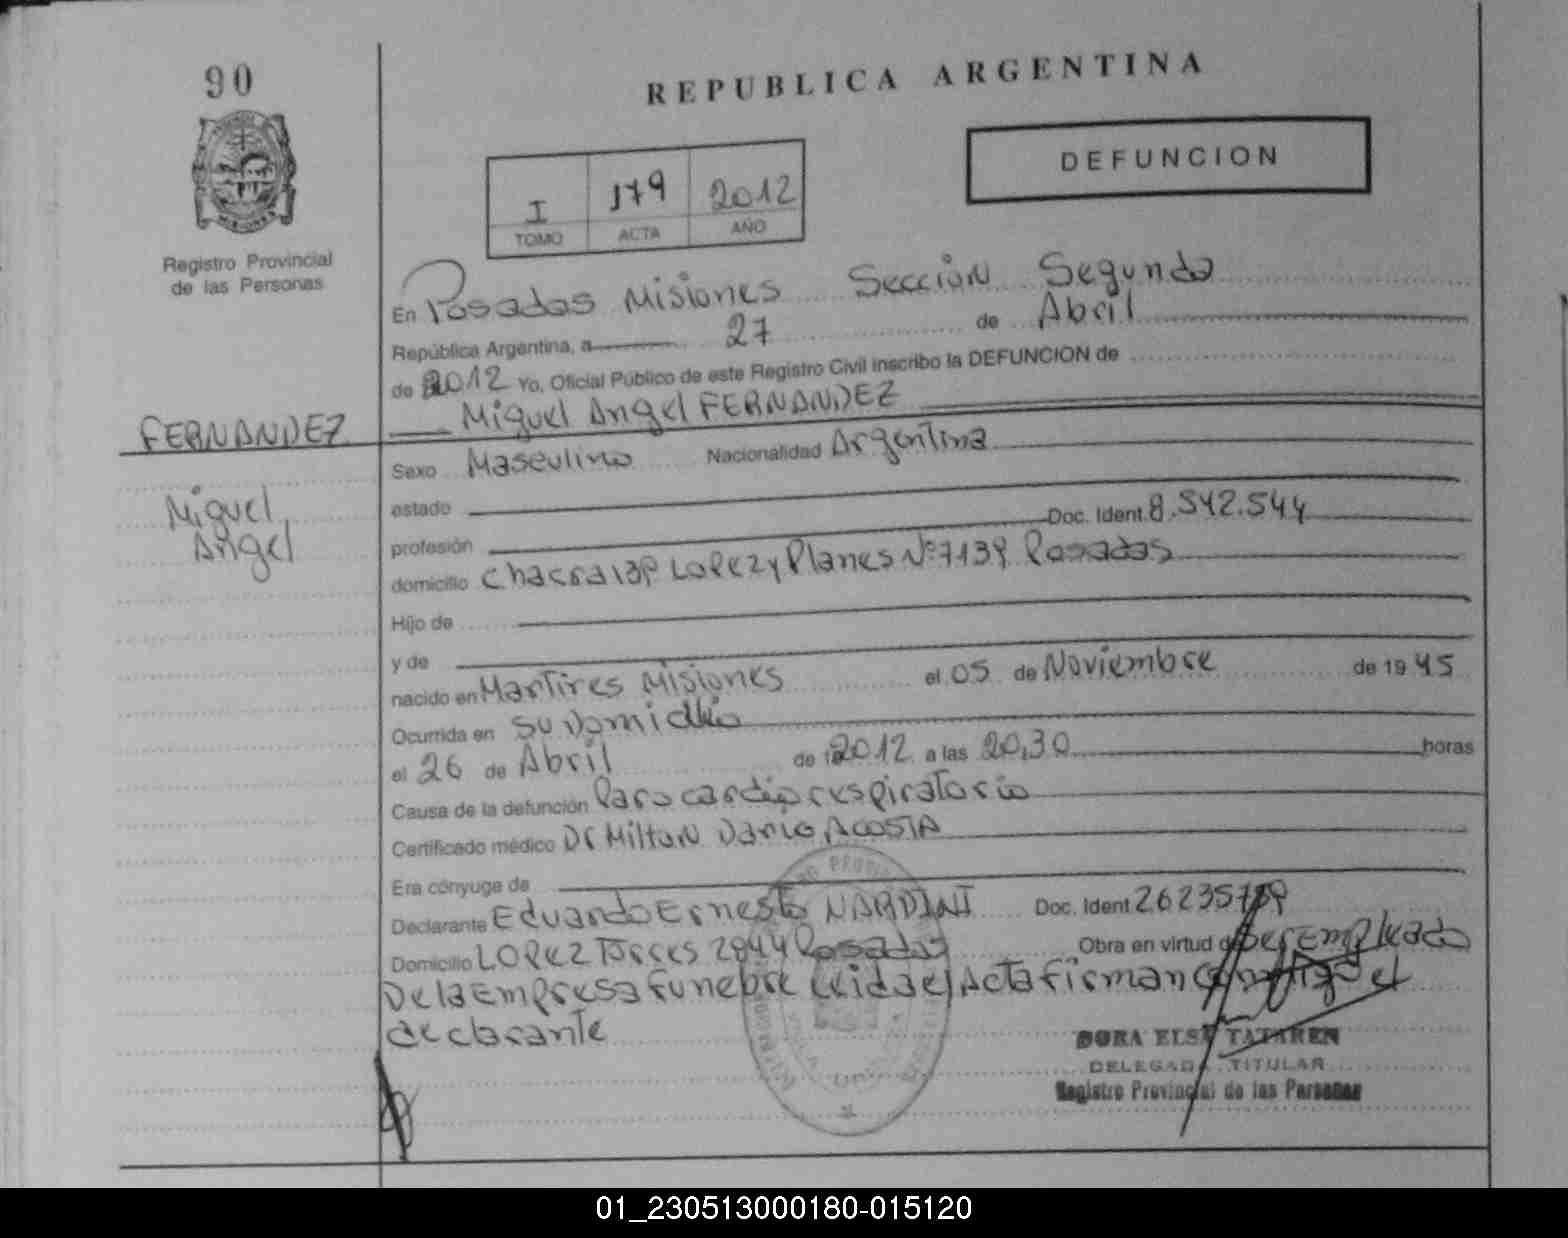 90
REPUBLICA ARGENTINA
DEFUNCION
I 179 2012
TOMO ACTA AÑO
Registro Provincial
de las Personas
En Posadas Misiones Sección Segunda
República Argentina, a 27 de Abril
de 2012 Yo, Oficial Público de este Registro Civil inscribo la DEFUNCION de
Miguel Angel FERNANDEZ
FERNANDEZ
Miguel
Angel
Sexo Masculino Nacionalidad Argentina
estado
profesión Doc. Ident. 8.542.544
domicilio Chacra 139 Lopez y Planes Nº 7139 Posadas
Hijo de
y de
nacido en Martires Misiones el 05 de Noviembre de 19 45
Ocurrida en su Domicilio
el 26 de Abril de 2012 a las 20,30 horas
Causa de la defunción Paro cardiorespiratorio
Certificado médico Dr Milton Dario ACOSTA
Era cónyuge de
Declarante Eduardo Ernesto NARDINI Doc. Ident 26235789
Domicilio LOPEZ Torres 2944 Posadas Obra en virtud de ser Empleado
De la Empresa Funebre Leida el Acta Firman Conmigo el
declarante
DORA ELSA TATAREN
DELEGADA TITULAR
Registro Provincial de las Personas
01_230513000180-015120